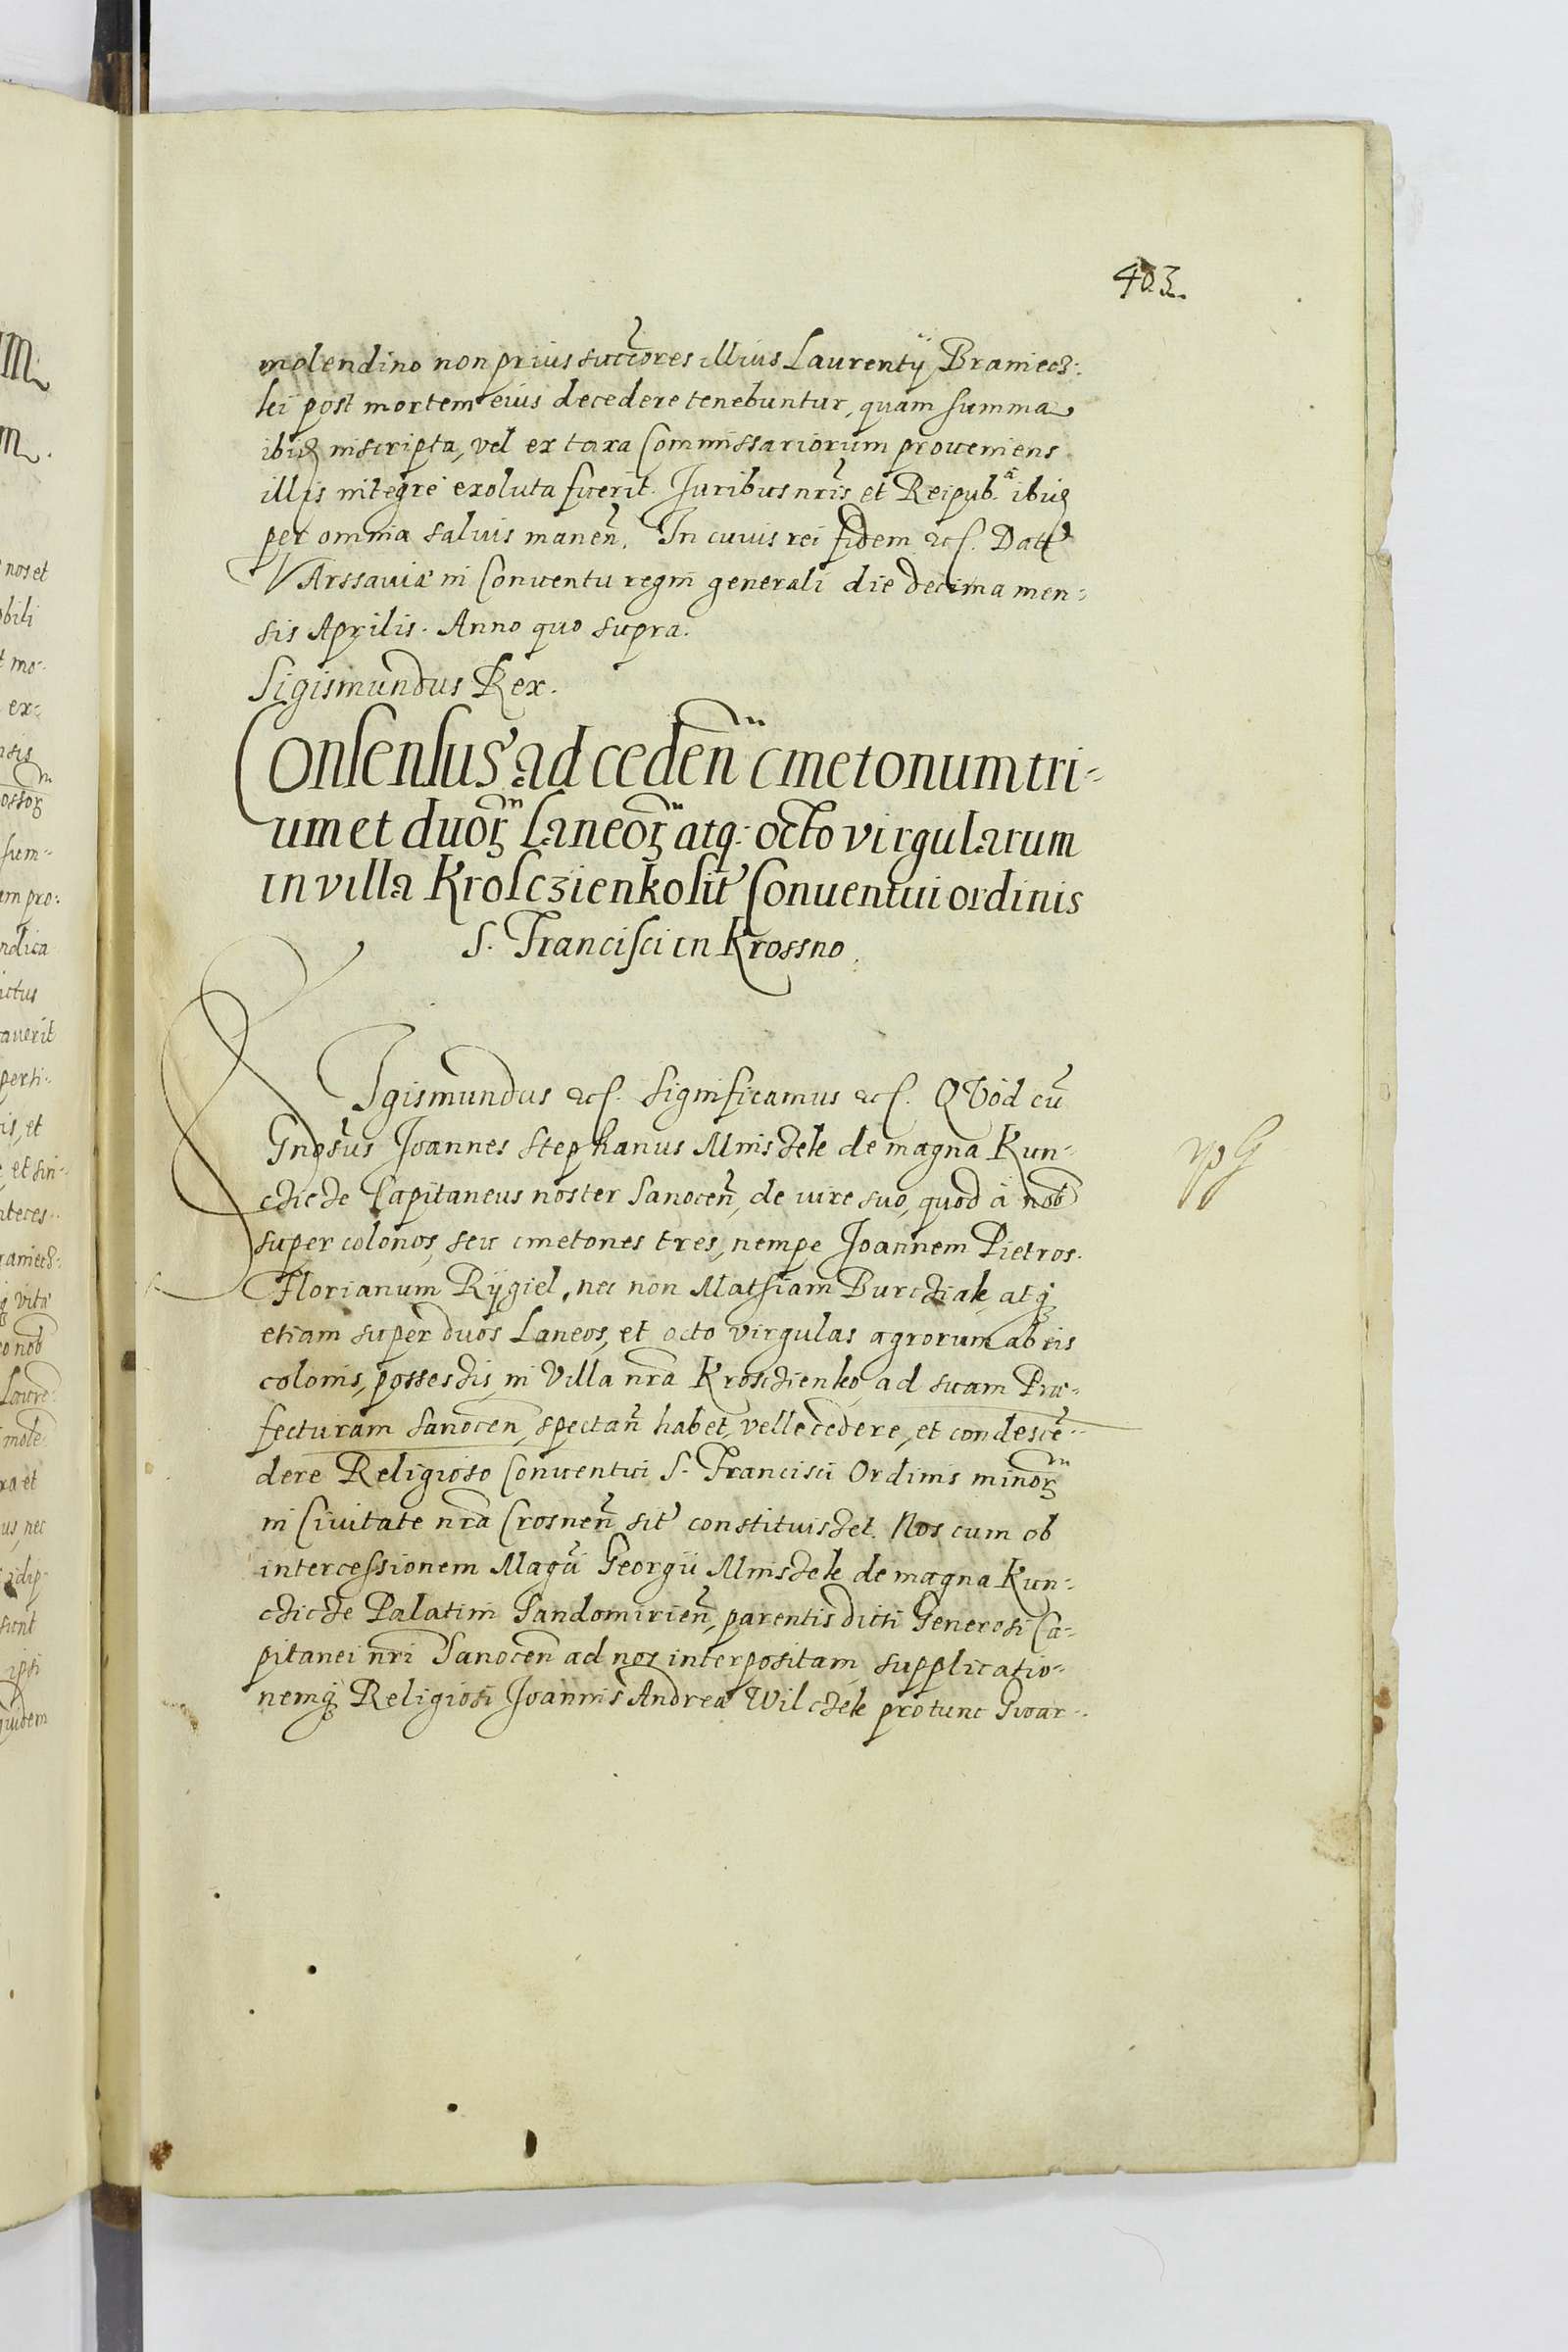 403.
molendino non prius succõres illius Laurentij Braniecz:
ki post mortem eius decedere tenebuntur, quam summa
ibiq inscripta, vel ex taxa Commissariorum proueniens
illis integrè exoluta fuerit. Juribus nris et Reipub. ibiq
per omnia saluis manen. In cuius rei fidem etc. Datt
VArssauiæ in Conuentu regni generali die decima men:
sis Aprilis. Anno quo supra.
Sigismundus Rex.
Consensus ad ceden cmetonum tri-
um et duor Laneor atq. octo virgularum
in villa Krosczienko sit Conuentui ordinis
S. Francisci in Krossno.
SIgismundus etc. Significamus etc. QVod cũ
Gnosus Joannes Stephanus Mniszek de magna Kun-
czicze Capitaneus noster Sanocen, de iure suo, quod à nob
super colonos, seu cmetones tres, nempe Joannem Pietros.
Florianum Rÿgiel, nec non Mathiam Burcziak, atq
etiam super duos Laneos, et octo virgulas agrorum ab eis
colonis, possessis, in Villa nra Krosczienko, ad suam Præ-
fecturam Sanocen, spectan habet, velle cedere, et condescẽ-
dere Religioso Conuentui S. Francisci Ordinis minor
in Ciuitate nra Crosnen sit constituisset. Nos cum ob
intercessionem Magci Georgii Mniszek de magna Kun-
czicze Palatini Sandomirien, parentis dicti Generosi Ca-
pitanei nri Sanocen ad nos interpositam, supplicatio-
nemq Religiosi Joannis Andreæ Wilczek pro tunc Gwar-
nos et
bili
mo-
ex:
sum-
pro:
ndica
ictus
auerit
perti-
is, et
et sin-
vita
nob
mole
ra et
us, nec
sicut
ipsi
quidem